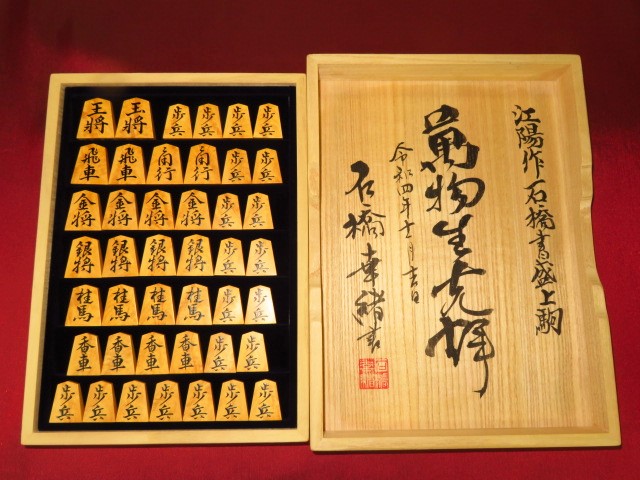 王將 玉將 歩兵 歩兵 歩兵 歩兵
飛車 飛車 角行 角行 歩兵 歩兵
金将 金将 金将 金将 歩兵 歩兵
銀将 銀将 銀将 銀将 歩兵 歩兵
桂馬 桂馬 桂馬 桂馬 歩兵 歩兵
香車 香車 香車 香車 歩兵 歩兵
歩兵 歩兵 歩兵 歩兵 歩兵 歩兵 歩兵
江陽作 石橋書盛上駒
萬物生光輝
令和四年 月吉日
石橋幸緒書